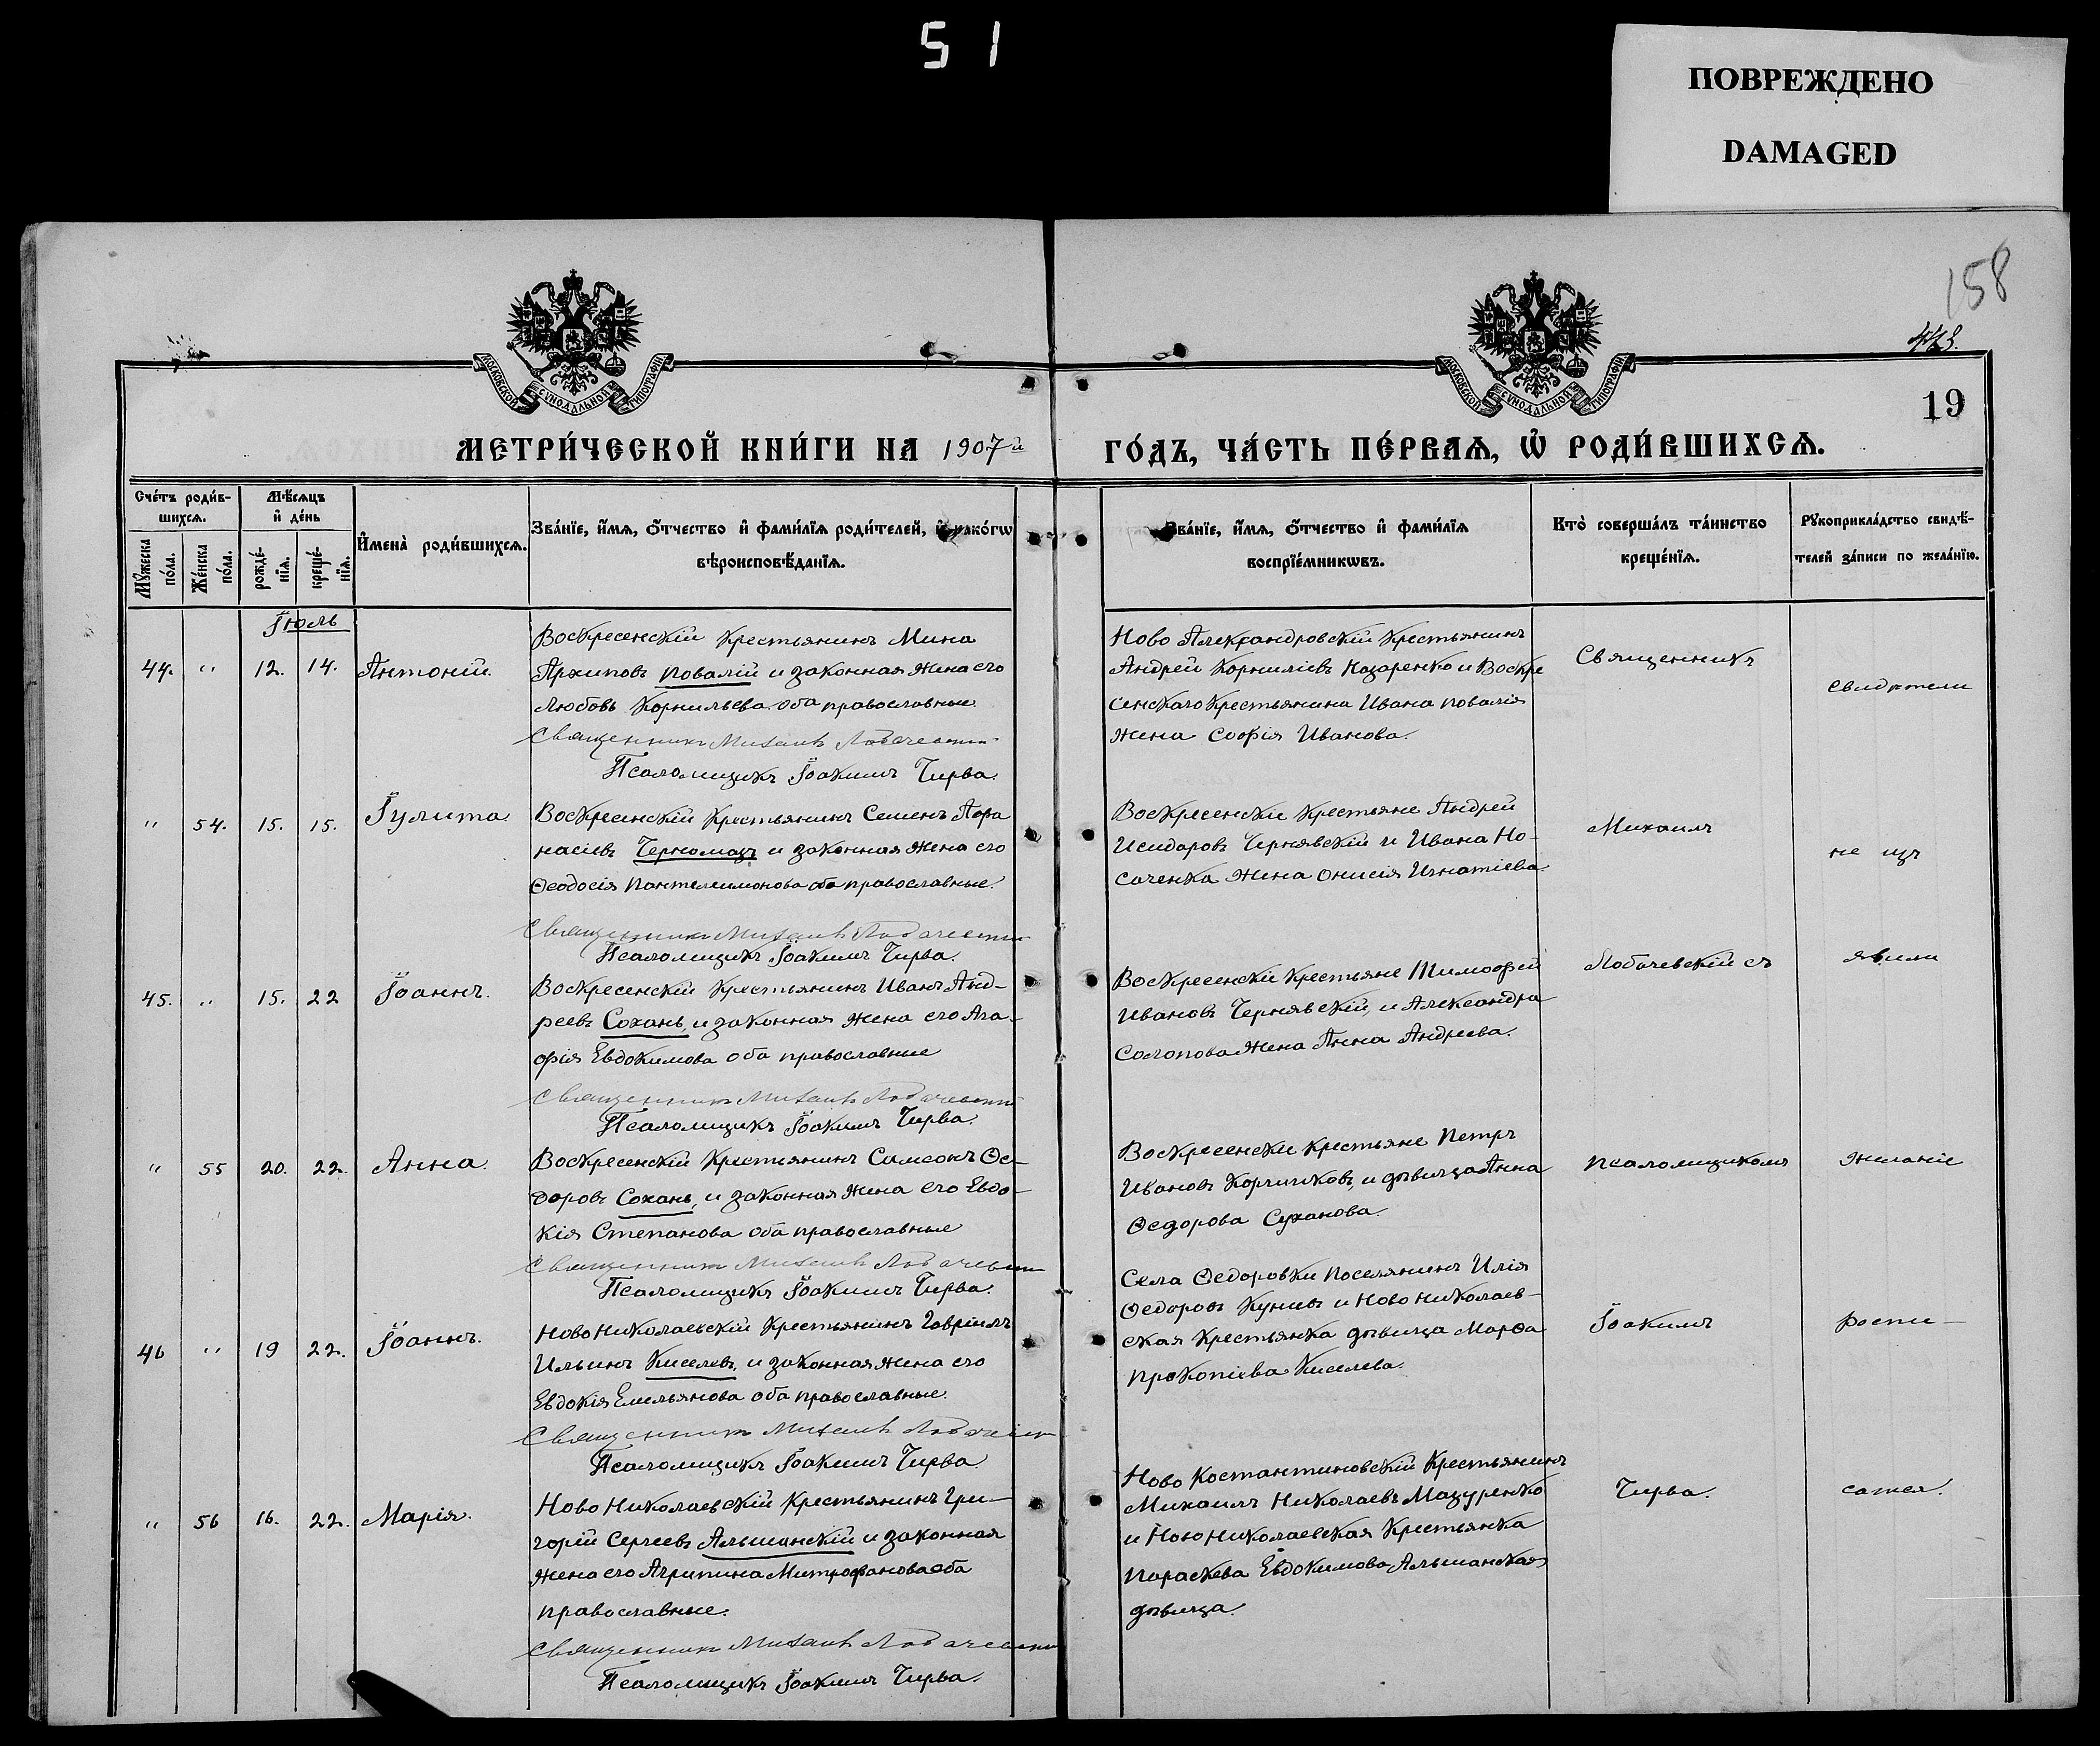 51
ПОВРЕЖДЕНО
DAMAGED
158
19
МОСКОВСКОЙ СѴНОДАЛЬНОЙ ТИПОГРАФІИ
МОСКОВСКОЙ СѴНОДАЛЬНОЙ ТИПОГРАФІИ
МЕТРИ́ЧЕСКОЙ КНИ́ГИ НА 1907й
ГО́ДЪ, ЧА́СТЬ ПЕ́РВАѦ, Ѡ҆ РОДИ́ВШИХСѦ.
Сче́тъ роди́в-
шихсѧ.
Мꙋ́жеска по́ла.
Же́нска по́ла.
Мѣ́сѧцъ
и҆ де́нь
рожде́-
нїѧ.
креще́-
нїѧ.
И҆мена̀ роди́вшихсѧ.
Зва́нїе, и҆́мѧ, ѻ҆́тчество и҆ фами́лїѧ роди́телей, и҆ како́гѡ
вѣроисповѣ́данїѧ.
Зва́нїе, и҆́мѧ, ѻ҆́тчество и҆ фами́лїѧ
воспрїе́мникѡвъ.
Кто̀ соверша́лъ та́инство
креще́нїѧ.
Рꙋкоприкла́дство свидѣ́-
телей за́писи по жела́нїю.
Іюль
44. " 12. 14. Антоній.
Воскресенскій Крестьянинъ Мина
Архиповъ Повалій и законная жена его
Любовь Корнильева оба православные.
Священникъ Михаилъ Лобачевскій
Псаломщикъ Іоакимъ Чирва.
Ново Александровскій Крестьянинъ
Андрей Корниліевъ Назаренко и Воскре
сенскаго Крестьянина Ивана Повалія
жена Софія Иванова.
Священникъ
свидѣтели
" 54. 15. 15. Іулита.
Воскресенскій Крестьянинъ Семенъ Афа
насіевъ Черномазъ и законная жена его
Ѳеодосія Пантелеимонова оба православные.
Священникъ Михаилъ Лобачевскій
Псаломщикъ Іоакимъ Чирва.
Воскресенскіе Крестьяне Андрей
Исидоровъ Чернявскій и Ивана Но-
саченка жена Онисія Игнатіева.
Михаилъ
не изъ
45. " 15. 22 Іоаннъ.
Воскресенскій Крестьянинъ Иванъ Анд-
реевъ Сохань, и законная жена его Ага-
фія Евдокимова оба православные
Священникъ Михаилъ Лобачевскій
Псаломщикъ Іоакимъ Чирва.
Воскресенскіе Крестьяне Тимофей
Ивановъ Чернявскій, и Александра
Солопова жена Анна Андреева.
Лобачевскій съ
явили
" 55 20. 22. Анна.
Воскресенскій Крестьянинъ Самсонъ Ѳе-
доровъ Сохань, и законная жена его Евдо-
кія Степанова оба православные
Священникъ Михаилъ Лобачевскій
Псаломщикъ Іоакимъ Чирва.
Воскресенскіе крестьяне Петръ
Ивановъ и дѣвица Анна
Ѳедорова Суханова.
псаломщикомъ
желаніе
46 " 19 22. Іоаннъ.
Ново Николаевскій Крестьянинъ Гавріилъ
Ильинъ Киселевъ, и законная жена его
Евдокія Емельянова оба православные.
Священникъ Михаилъ Лобачевскій
Псаломщикъ Іоакимъ Чирва
Села Ѳедоровки Поселянинъ Илія
Ѳедоровъ и Ново Николаев-
ская Крестьянка дѣвица Марѳа
Прокопіева Киселева.
Іоакимъ
роспи-
" 56 16. 22. Марія.
Ново Николаевскій Крестьянинъ Гри-
горій Сергеевъ Альшанскій и законная
жена его Агрипина Митрофанова оба
православные.
Священникъ Михаилъ Лобачевскій
Псаломщикъ Іоакимъ Чирва.
Ново Костантиновскій Крестьянинъ
Михаилъ Николаевъ Мазуренко
и Ново Николаевская Крестьянка
Параскева Евдокимова Альшанская
дѣвица.
Чирва.